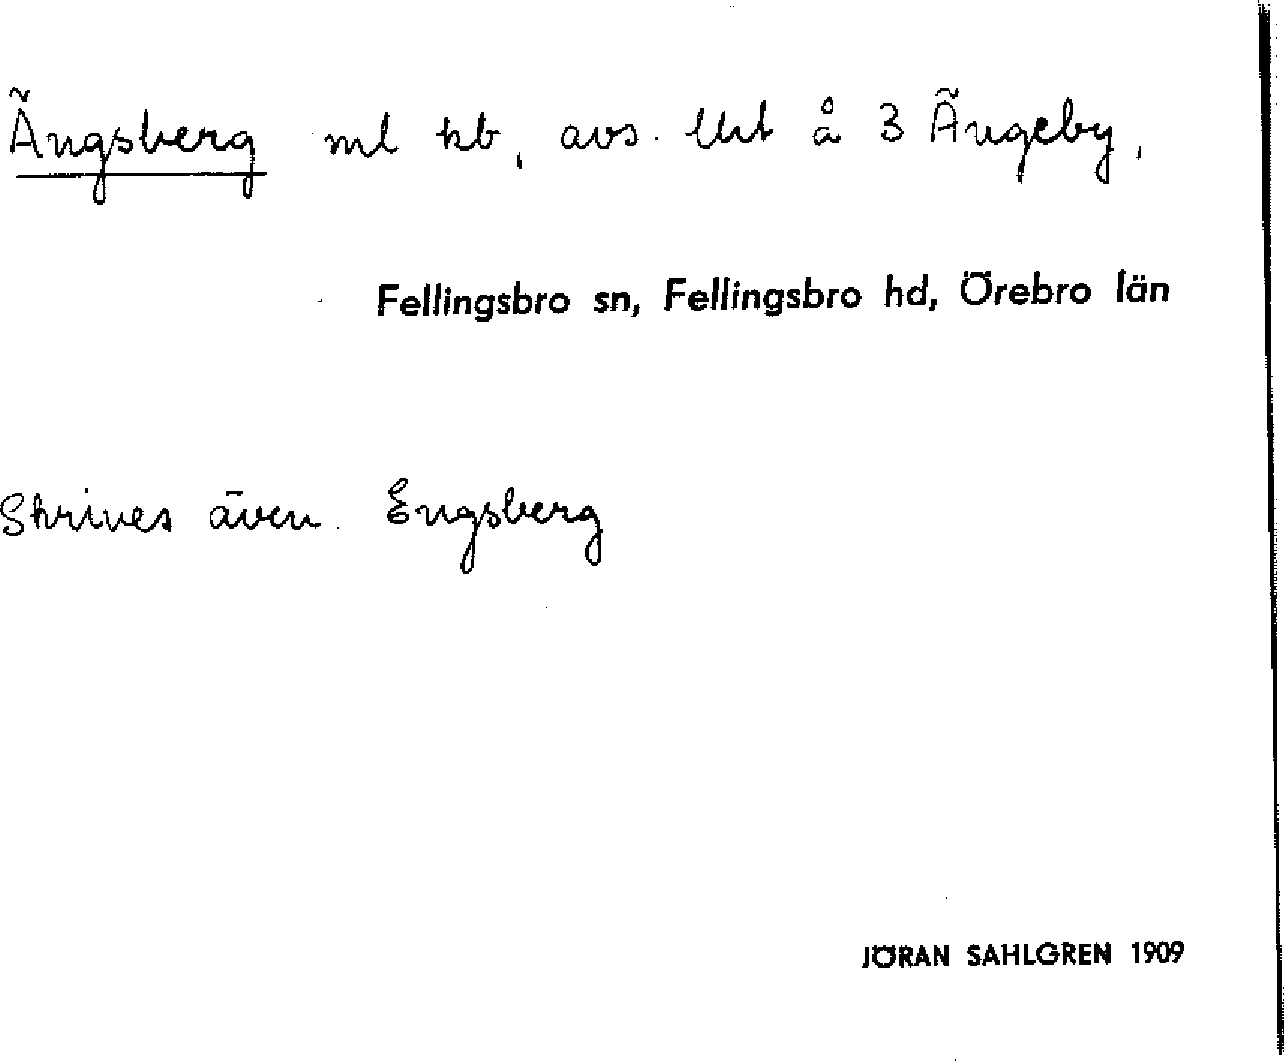 Ängsberg ml kb, avs. lht å 3 Ängeby,
Fellingsbro sn, Fellingsbro hd, Örebro län
Skrives även Engsberg
JÖRAN SAHLGREN 1909